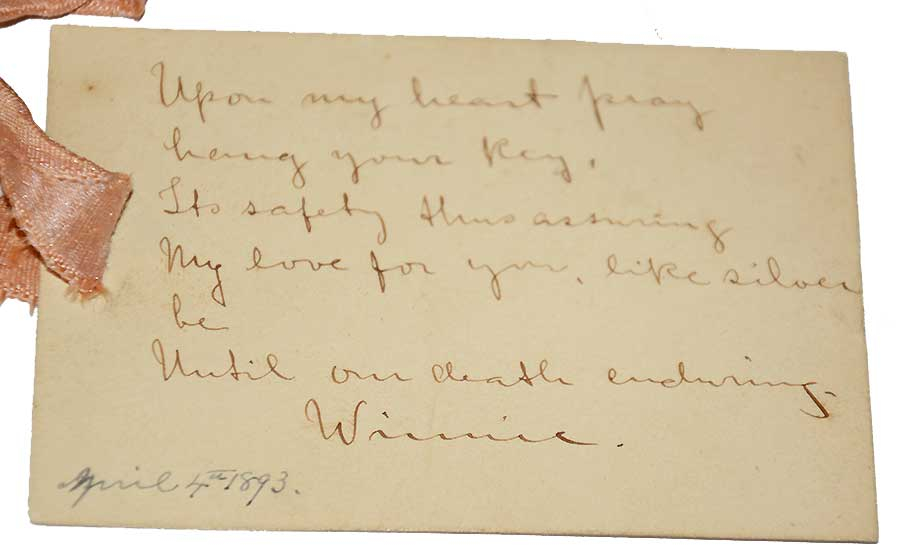 Upon my heart pray
hang your key,
Its safety thus assuring
My love for you, like silver
be
Until our death enduring.
Winnie.
April 4th 1893.